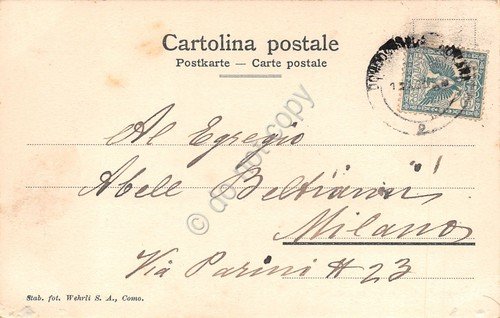 Cartolina postale
Postkarte — Carte postale
Al Egregio
Abell Beltrami
Milano
Via Parini # 23
Stab. fot. Wehrli S. A., Como.
© do not copy
2